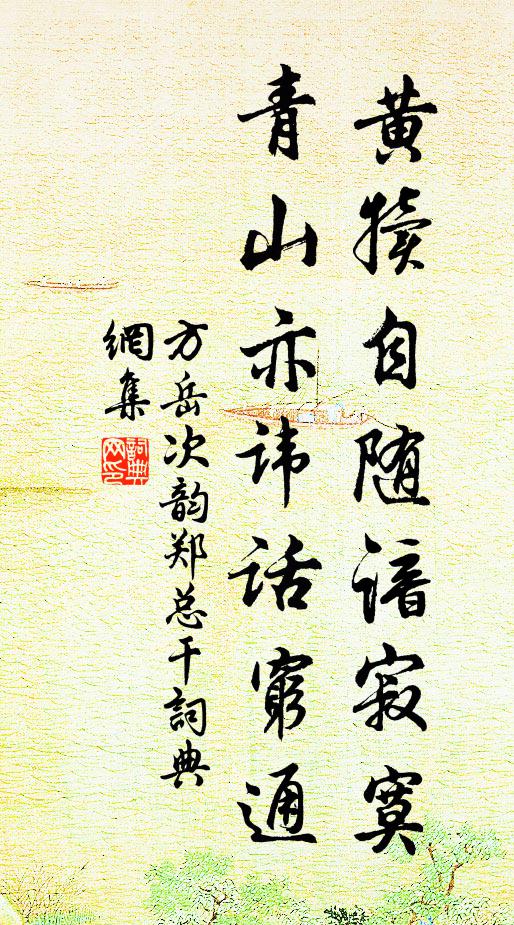 黄犊自随谙寂寞
青山亦讳话穷通
方岳次韵郑总干詞典
網集
詞典网印